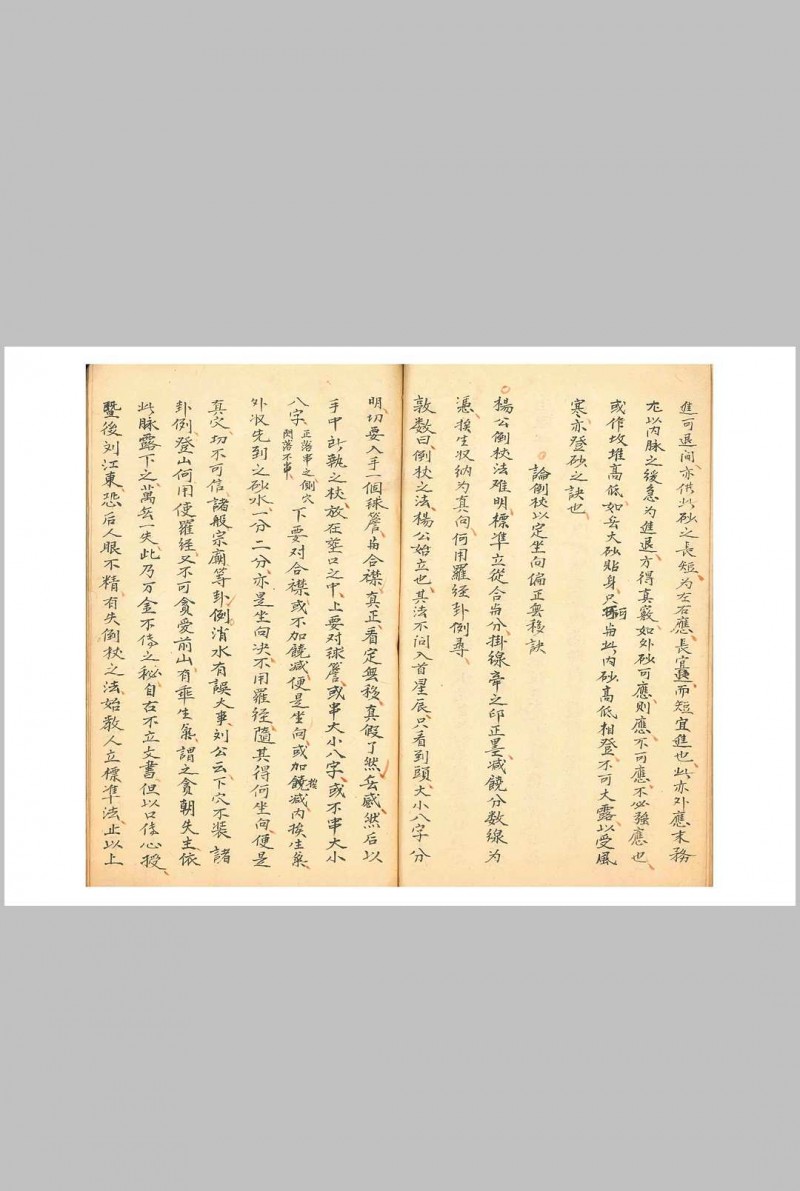 進可退间亦供此砂之長短为左右應長宜退而短宜進也此亦外應末務
尤以内脉之缓急为進退方得真竅如外砂可應则應不可應不必強應也
或作坟堆高低如無大砂贴身只可与此内砂高低相登不可大露以受風
寒亦登砂之訣也
論倒杖以定坐向偏正無移訣
楊公倒杖法雖明標準立從合与分掛線牵之印正墨减饒分数線为
凭挨生收纳为真向何用羅经卦例尋
敦数曰倒杖之法楊公始立也其法不问入首星辰只看到頭大小八字分
明切要入手一個球簷与合襟真正看定無移真假了然無感然后以
手中所執之杖放在茔口之中上要对球簷或串大小八字或不串大小
八字正落串之倒穴閃落不串下要对合襟或不加饒减便是坐向或加饒减内挨生氣
外收先到之砂水一分二分亦是坐向决不用羅经隨其得何坐向便是
真穴切不可信諸般宗廟等卦例消水有誤大事刘公云下穴不装諸
卦例登山何用使羅经又不可貪爱前山有乖生氣謂之貪朝失主依
此脉露下之萬無一失此乃万金不传之秘自古不立文書但以口传心授
暨後刘江東恐后人眼不精有失倒杖之法始教人立標準法止以上